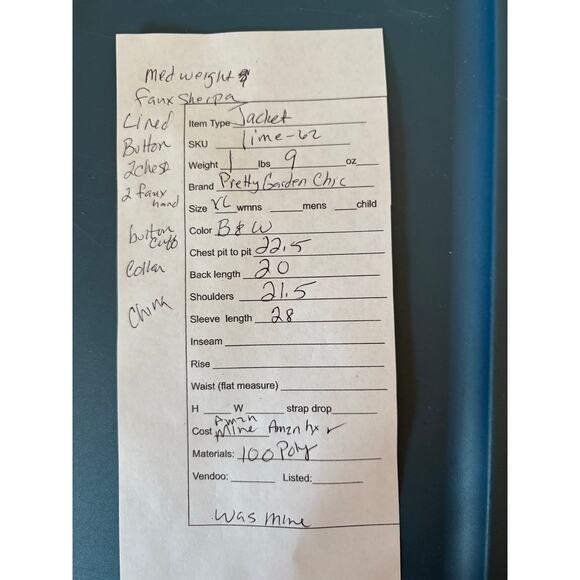 Med weight
faux sherpa
Lined
Button
2chest
2 faux
hand
button
cuff
Collar
China
Item Type Jacket
SKU lime-62
Weight 1 lbs 9 oz
Brand Pretty Garden Chic
Size XL wmns mens child
Color B & W
Chest pit to pit 22.5
Back length 20
Shoulders 21.5
Sleeve length 28
Inseam
Rise
Waist (flat measure)
H W strap drop
Amzn
Cost Mine Amzn hx ✓
Materials: 100 Poly
Vendoo: Listed:
Was mine